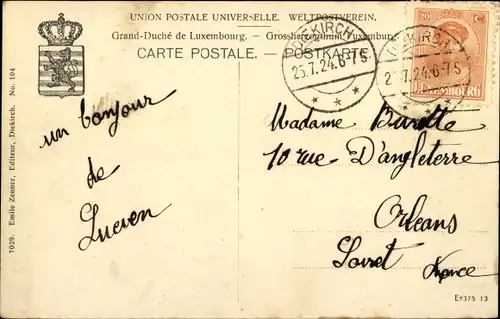 UNION POSTALE UNIVERSELLE. WELTPOSTVEREIN.
Grand-Duché de Luxembourg. — Grossherzogthum Luxemburg.
CARTE POSTALE. — POSTKARTE
DIEKIRCH
25.7.24.6-7S
DIEKIRCH
2 .7.24.6-7S
20 C
LUXEMBOURG
7029. Emile Zenner, Editeur, Diekirch. No. 104
un bonjour
de
Lucien
Madame Burette
10 rue D'angleterre
Orleans
Loiret
France
E9375 13